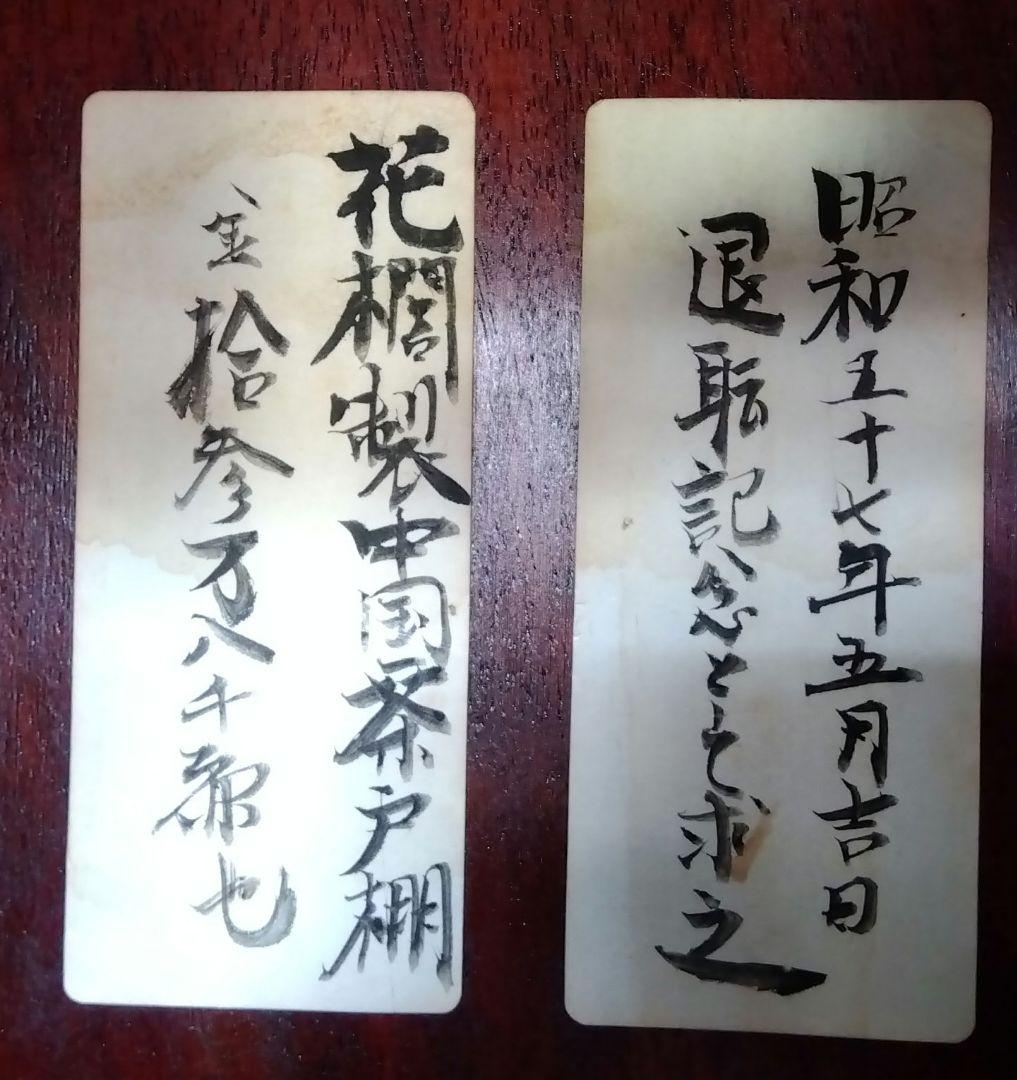 昭和五十七年五月吉日
退耺記念として求之
花櫚製中国茶戸棚
金拾参万八千也